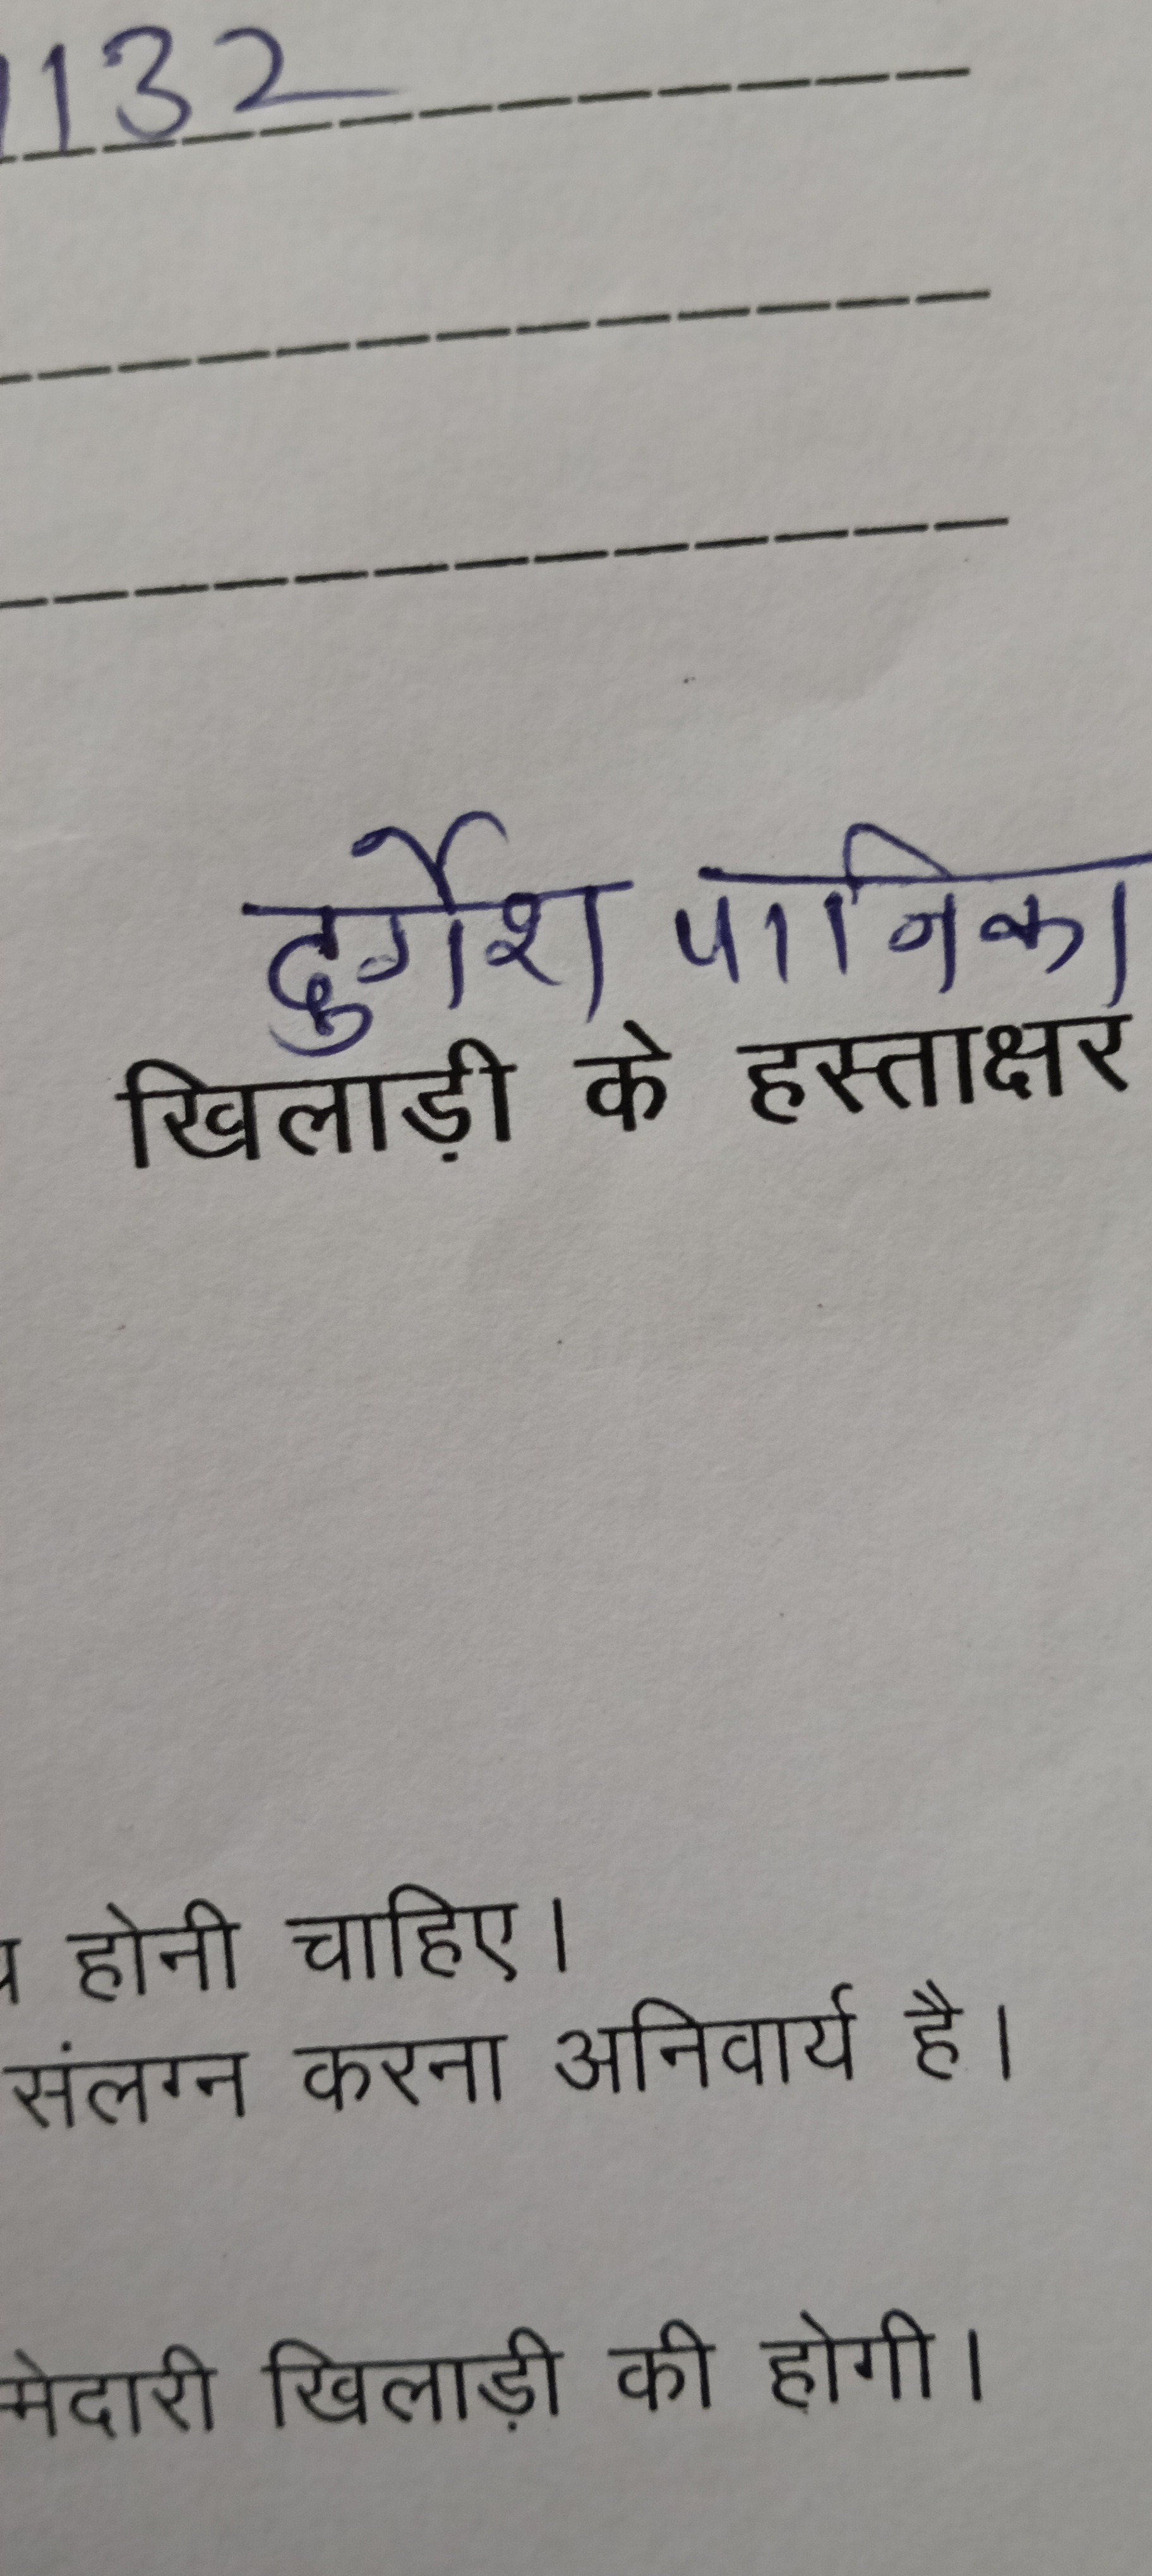 1132
दुर्गेश पानिका
खिलाड़ी के हस्ताक्षर
होनी चाहिए।
संलग्न करना अनिवार्य है।
मेदारी खिलाड़ी की होगी।